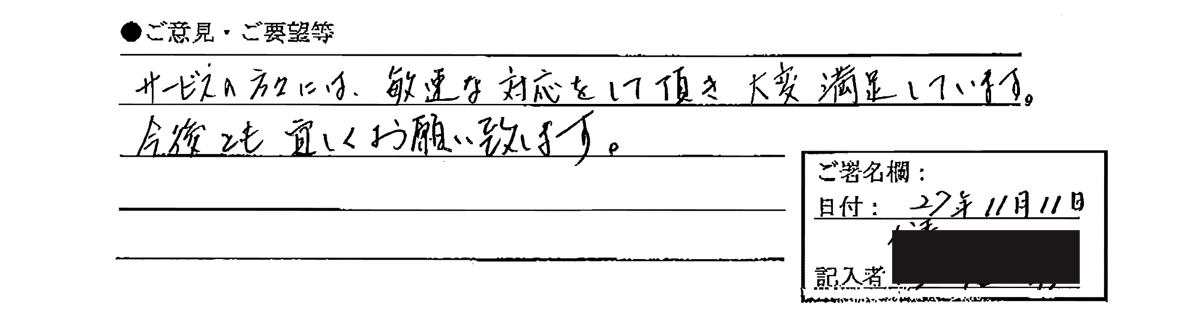 ●ご意見・ご要望等
サービスの方々には、敏速な対応をして頂き大変満足しています。
今後とも宜しくお願い致します。
ご署名欄：
日付： 27年11月11日
記入者